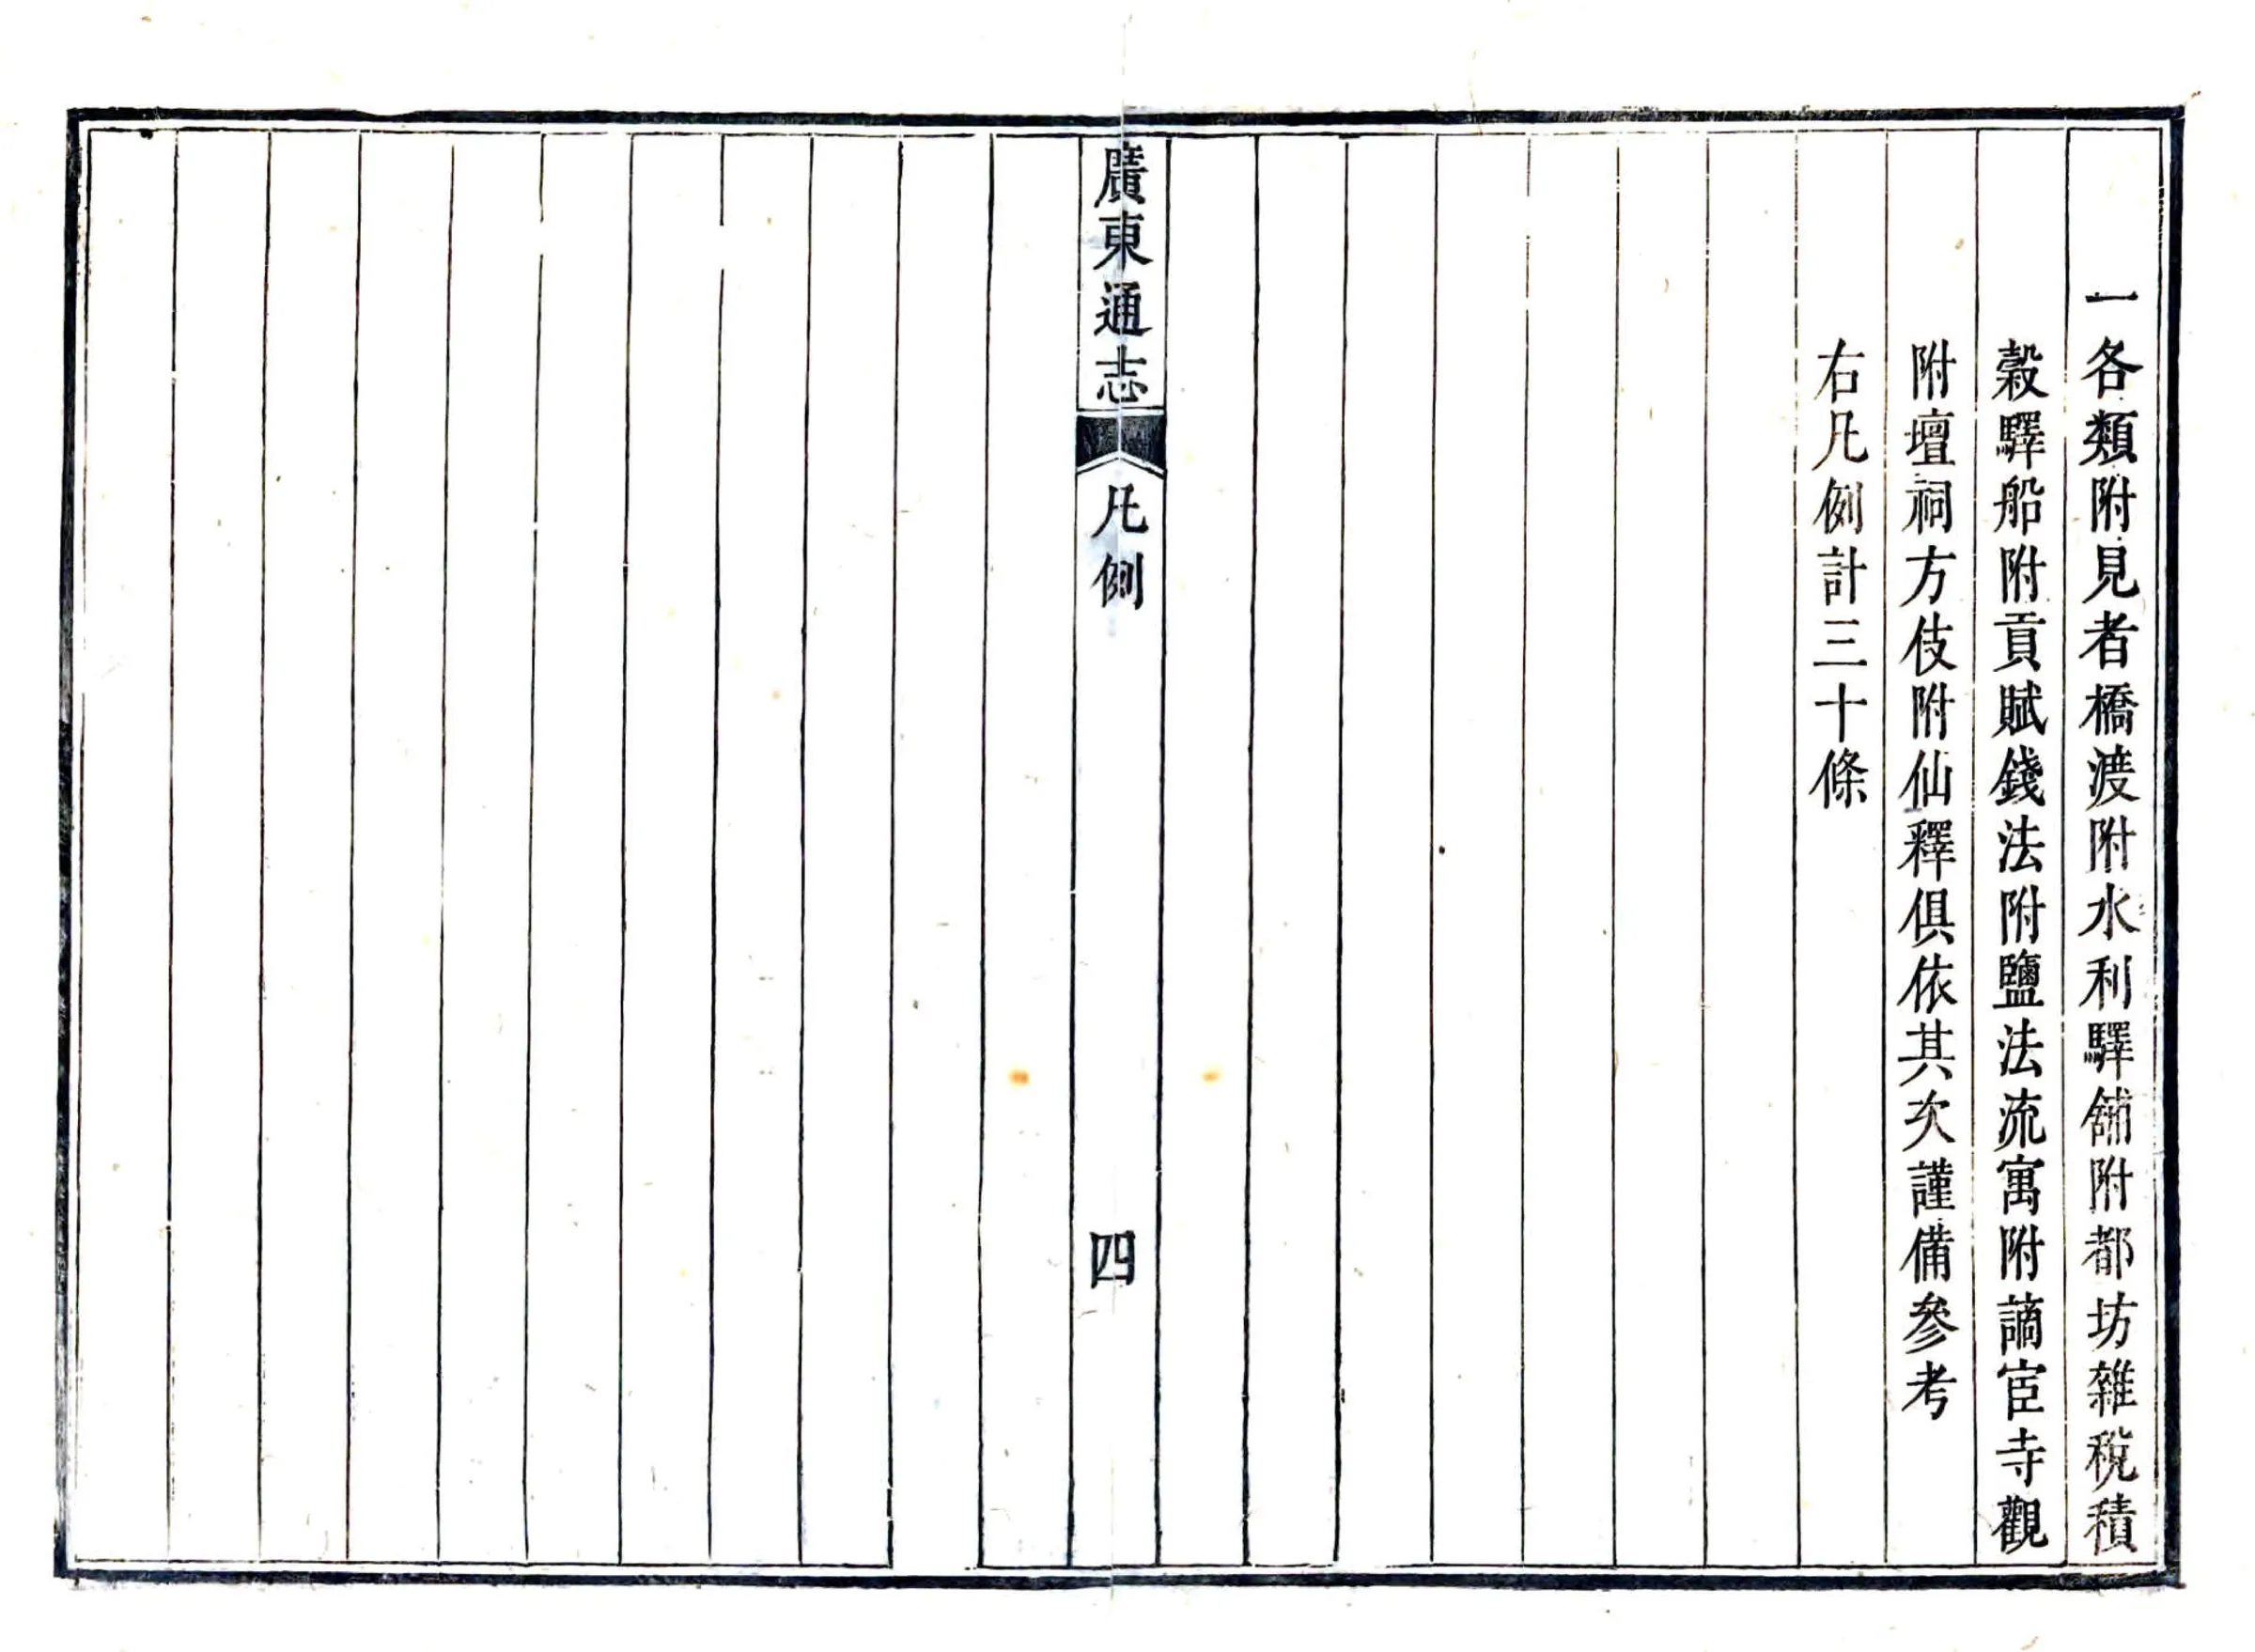 一各類附見者橋渡附水利驛舖附都坊雜稅積
穀驛船附貢賦錢法附鹽法流寓附謫宦寺觀
附壇祠方伎附仙釋俱依其次謹備參考
右凡例計三十條
廣東通志
凡例
四